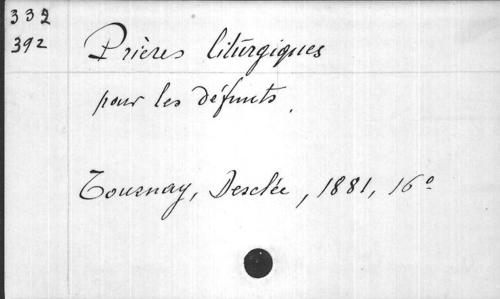 332
392
Prières liturgiques
pour les défunts.
Tournay, Desclée, 1881, 16°